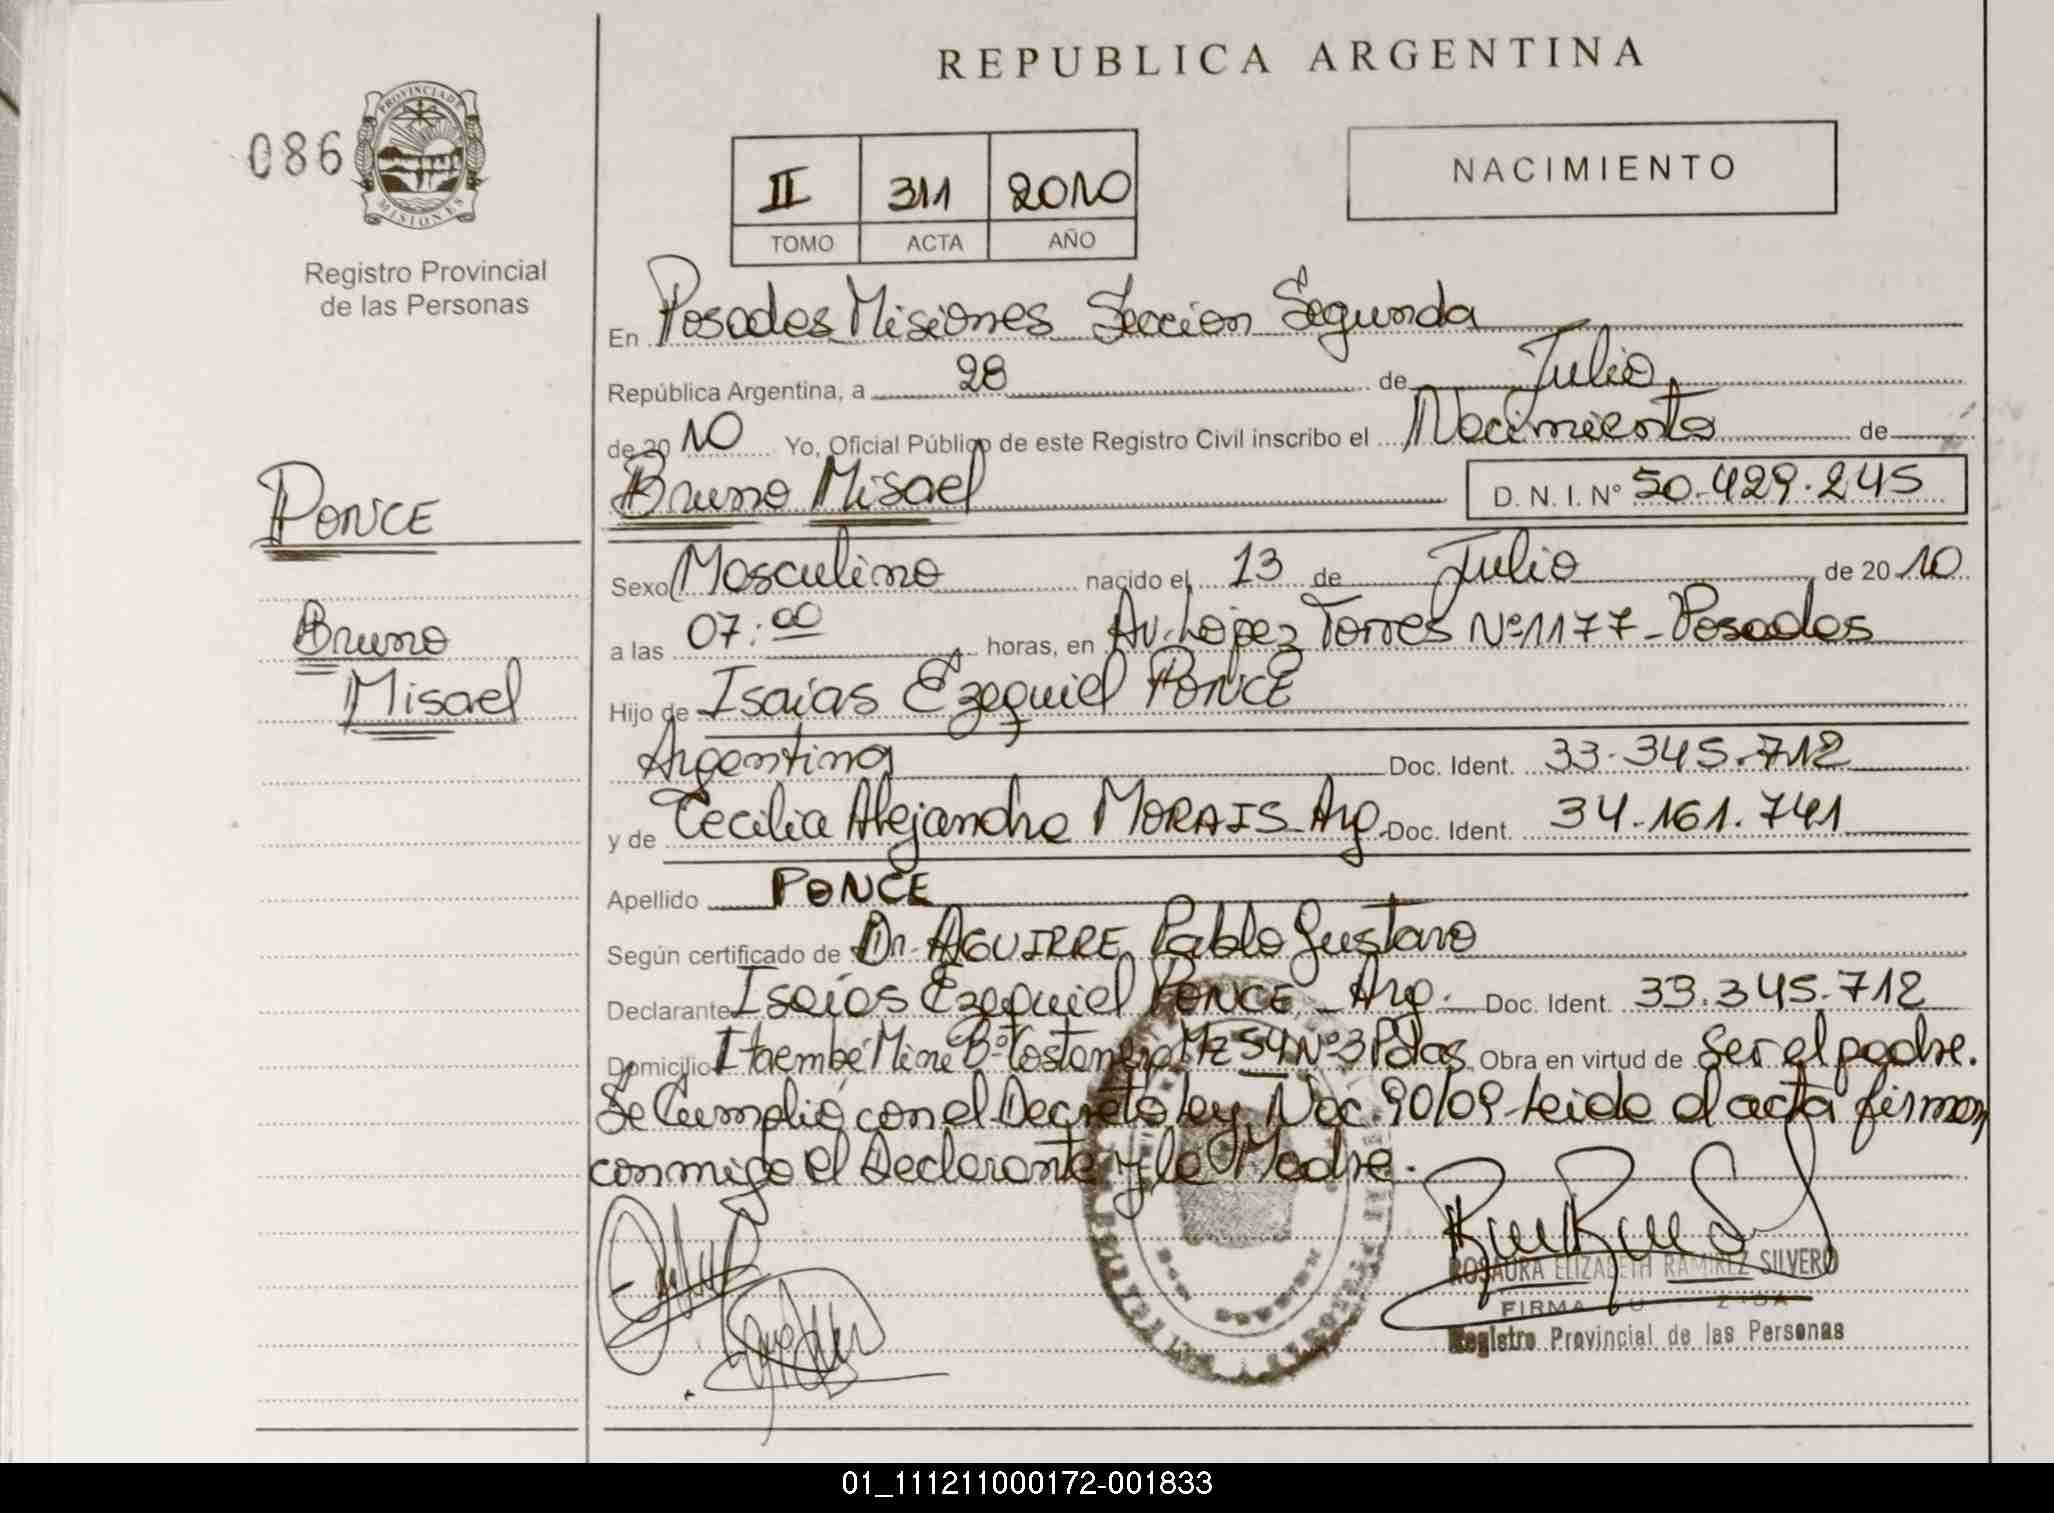 REPUBLICA ARGENTINA
086
PROVINCIA DE
MISIONES
Registro Provincial
de las Personas
II 311 2010
TOMO ACTA AÑO
NACIMIENTO
En Posadas Misiones Seccion Segunda
República Argentina, a 28 de Julio
de 2010 Yo, Oficial Público de este Registro Civil inscribo el Nacimiento de
Bruno Misael D. N. I. Nº 50.429.245
PONCE
Bruno
Misael
Sexo Masculino nacido el 13 de Julio de 2010
a las 07:00 horas, en Av. Lopez Torres Nº 1177 - Posadas
Hijo de Isaias Ezequiel PONCE
Argentino Doc. Ident. 33.345.712
y de Cecilia Alejandra MORAIS Arg. Doc. Ident. 34.161.741
Apellido PONCE
Según certificado de Dr. AGUIRRE Pablo Gustavo
Declarante Isaías Ezequiel PONCE - Arg. Doc. Ident. 33.345.712
Domicilio Itaembé Mini Bº Costanera Mz 54 Nº 3 Pdas Obra en virtud de Ser el padre.
Se Cumplió con el Decreto ley Nac. 90/09 Leida el acta firman
conmigo el Declarante y la Madre.
ROSAURA ELIZABETH RAMIREZ SILVERO
FIRMA
Registro Provincial de las Personas
01_111211000172-001833